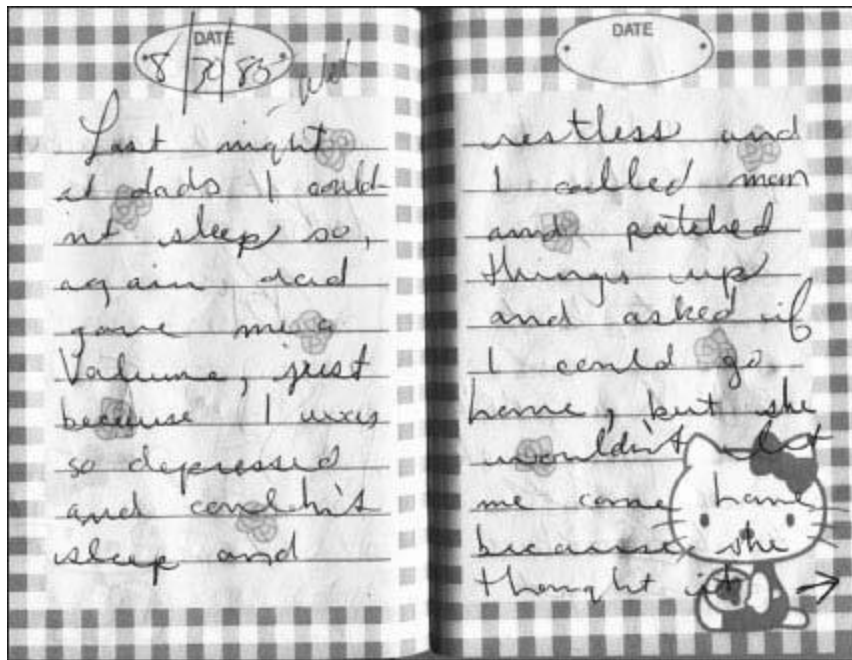 DATE
8/30/85
Wet
Last night
at dads I could-
n't sleep so,
again, dad
gave me a
Valume, just
because I was
so depressed
and couldn't
sleep and
DATE
restless and
I called mom
and patched
things up
and asked if
I could go
home, but she
wouldn't let
me come home
because she
thought it →